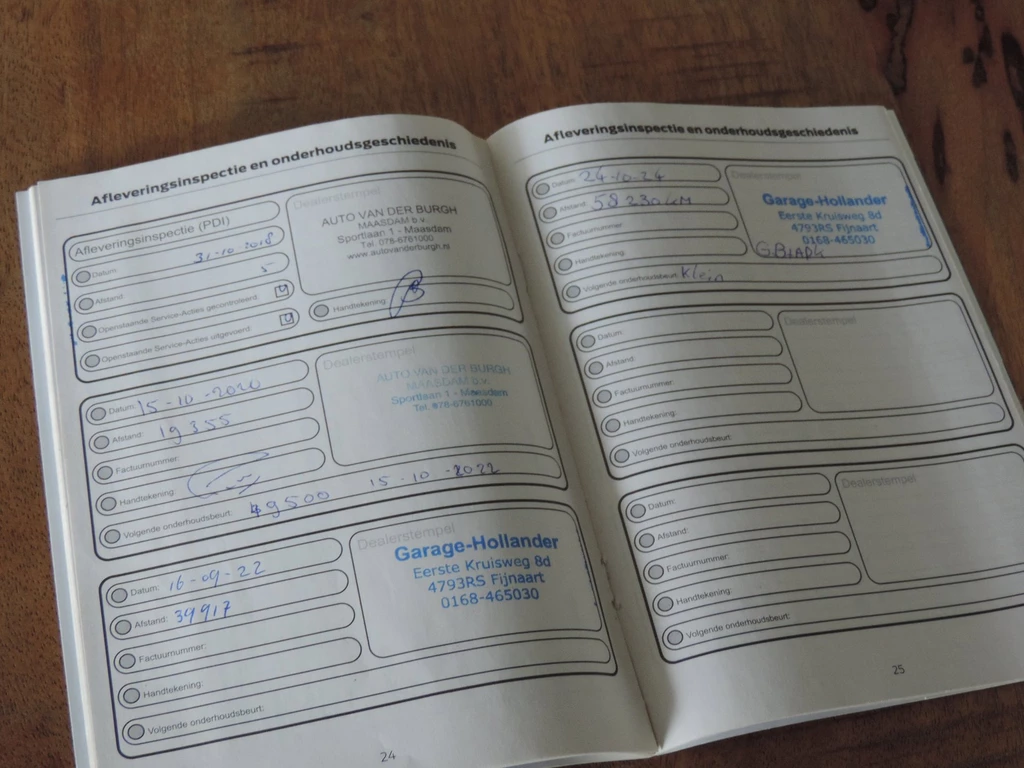 Afleveringsinspectie en onderhoudsgeschiedenis
Afleveringsinspectie (PDI)
Datum 31-10-2018
Afstand 5
Openstaande Service-Acties gecontroleerd:
Openstaande Service-Acties uitgevoerd:
Dealerstempel
AUTO VAN DER BURGH
MAASDAM b.v.
Sportlaan 1 - Maasdam
Tel. 078-6761000
www.autovanderburgh.nl
Handtekening
Datum: 15-10-2020
Afstand: 19355
Factuurnummer:
Handtekening:
Volgende onderhoudsbeurt: 49500 15-10-2022
Dealerstempel
AUTO VAN DER BURGH
MAASDAM b.v.
Sportlaan 1 - Maasdam
Tel. 078-6761000
Datum: 16-09-22
Afstand: 39917
Factuurnummer:
Handtekening:
Volgende onderhoudsbeurt:
Dealerstempel
Garage-Hollander
Eerste Kruisweg 8d
4793RS Fijnaart
0168-465030
24
Afleveringsinspectie en onderhoudsgeschiedenis
Datum: 24-10-24
Afstand: 58230 KM
Factuurnummer:
Handtekening:
Volgende onderhoudsbeurt: Klein
Dealerstempel
Garage-Hollander
Eerste Kruisweg 8d
4793RS Fijnaart
0168-465030
Datum:
Afstand:
Factuurnummer:
Handtekening:
Volgende onderhoudsbeurt:
Dealerstempel
Datum:
Afstand:
Factuurnummer:
Handtekening:
Volgende onderhoudsbeurt:
Dealerstempel
25